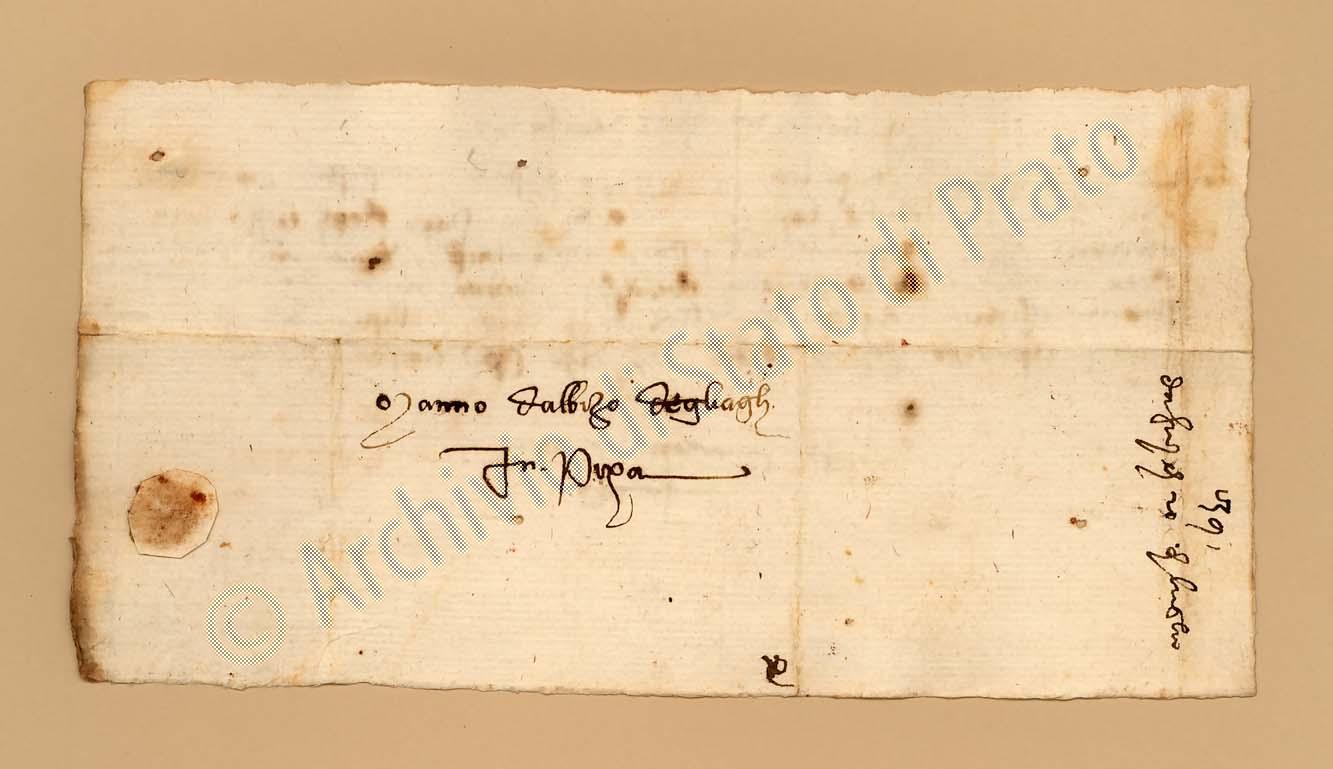 Manno d'albizo degliagh.
In Pixa
1391
© Archivio di Stato di Prato